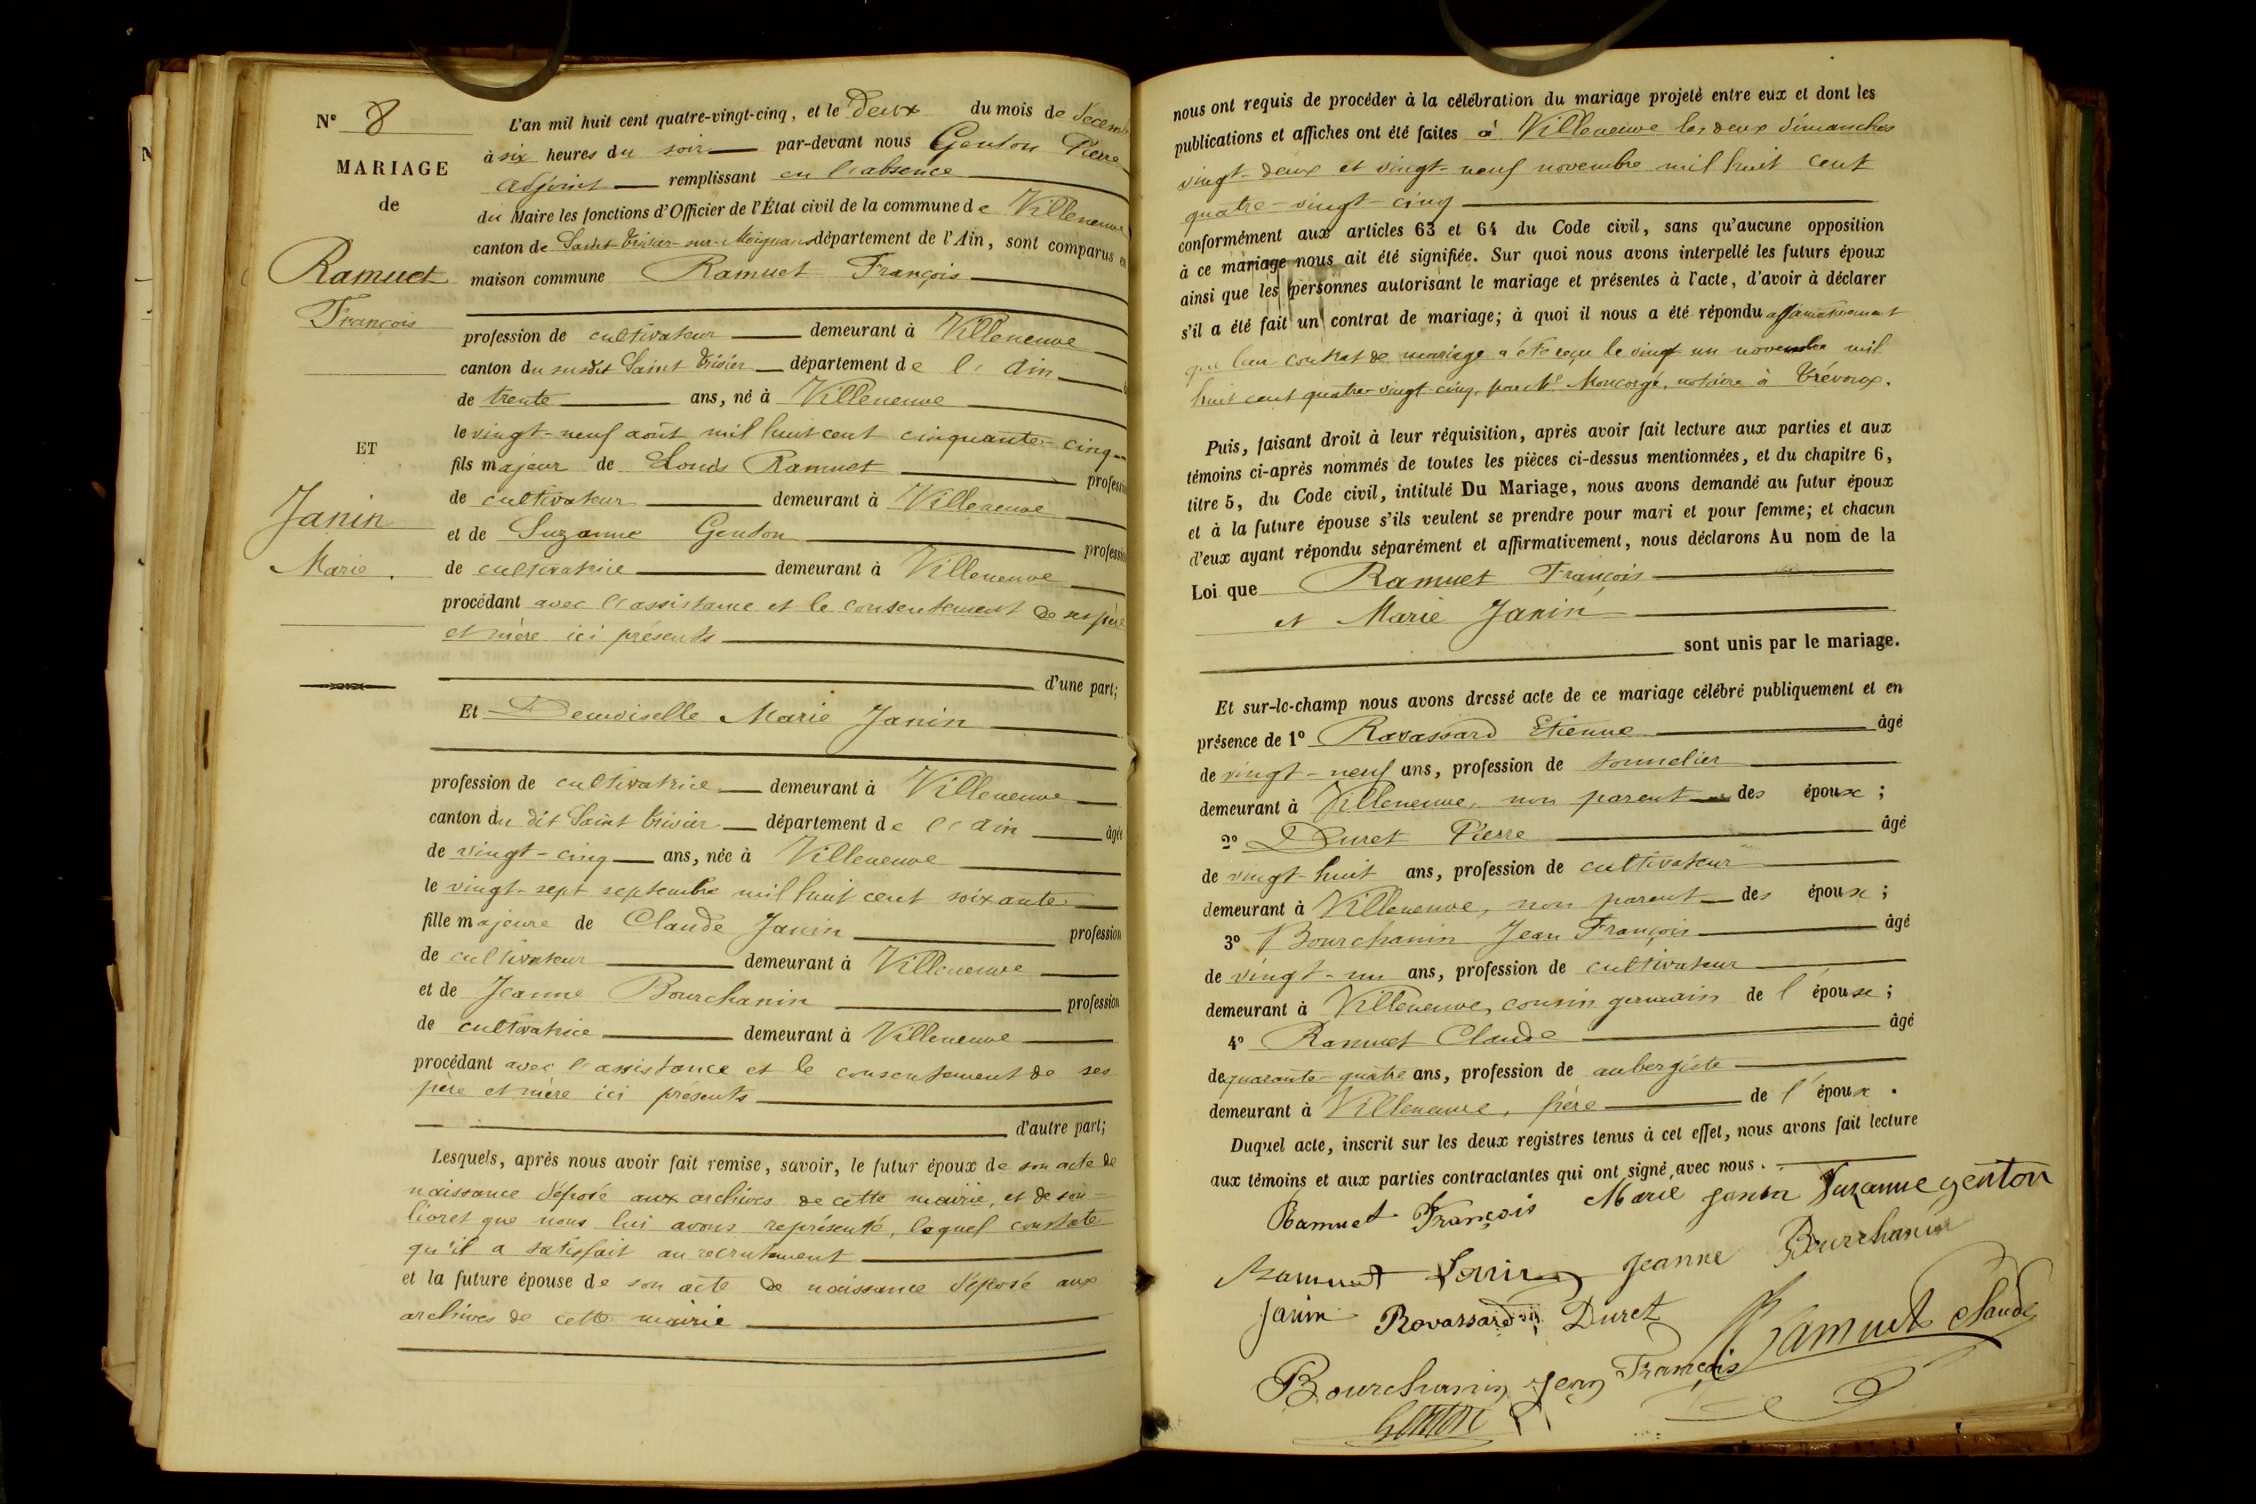 N° 8
MARIAGE
de
Ramuet
François
ET
Janin
Marie.
L'an mil huit cent quatre-vingt-cinq, et le Deux du mois de Décemb
à six heures du soir par-devant nous Genton Pierre
adjoint remplissant en l'absence
du Maire les fonctions d'Officier de l'État civil de la commune de Villeneuve
canton de Saint Trivier-sur-Moignans département de l'Ain, sont comparus en
maison commune Ramuet François
profession de cultivateur demeurant à Villeneuve
canton du susdit Saint Trivier département de l'Ain
de trente ans, né à Villeneuve
le vingt-neuf août mil huit cent cinquante-cinq
fils majeur de Louis Ramuet profession
de cultivateur demeurant à Villeneuve
et de Suzanne Genton profession
de cultivatrice demeurant à Villeneuve
procédant avec l'assistance et le consentement de ses père
et mère ici présents
d'une part;
Et Demoiselle Marie Janin
profession de cultivatrice demeurant à Villeneuve
canton du dit Saint Trivier département de l'Ain âgée
de vingt-cinq ans, née à Villeneuve
le vingt-sept septembre mil huit cent soixante
fille majeure de Claude Janin profession
de cultivateur demeurant à Villeneuve
et de Jeanne Bourchanin profession
de cultivatrice demeurant à Villeneuve
procédant avec l'assistance et le consentement de ses
père et mère ici présents
d'autre part;
Lesquels, après nous avoir fait remise, savoir, le futur époux de son acte de
naissance déposé aux archives de cette mairie, et de son
livret que nous lui avons représenté, lequel constate
qu'il a satisfait au recrutement
et la future épouse de son acte de naissance déposé aux
archives de cette mairie
nous ont requis de procéder à la célébration du mariage projeté entre eux et dont les
publications et affiches ont été faites à Villeneuve les deux dimanches
vingt-deux et vingt-neuf novembre mil huit cent
quatre-vingt-cinq
conformément aux articles 63 et 64 du Code civil, sans qu'aucune opposition
à ce mariage nous ait été signifiée. Sur quoi nous avons interpellé les futurs époux
ainsi que les personnes autorisant le mariage et présentes à l'acte, d'avoir à déclarer
s'il a été fait un contrat de mariage; à quoi il nous a été répondu affirmativement
que leur contrat de mariage a été reçu le vingt un novembre mil
huit cent quatre-vingt-cinq, par Me Moncorgé, notaire à Trévoux.
Puis, faisant droit à leur réquisition, après avoir fait lecture aux parties et aux
témoins ci-après nommés de toutes les pièces ci-dessus mentionnées, et du chapitre 6,
titre 5, du Code civil, intitulé Du Mariage, nous avons demandé au futur époux
et à la future épouse s'ils veulent se prendre pour mari et pour femme; et chacun
d'eux ayant répondu séparément et affirmativement, nous déclarons Au nom de la
Loi que Ramuet François
et Marie Janin
sont unis par le mariage.
Et sur-le-champ nous avons dressé acte de ce mariage célébré publiquement et en
présence de 1° Ravassard Etienne âgé
de vingt-neuf ans, profession de tonnelier
demeurant à Villeneuve, non parent des époux;
2° Duret Pierre âgé
de vingt-huit ans, profession de cultivateur
demeurant à Villeneuve, non parent des époux;
3° Bourchanin Jean François âgé
de vingt-un ans, profession de cultivateur
demeurant à Villeneuve, cousin germain de l'épouse;
4° Ramuet Claude âgé
de quarante-quatre ans, profession de aubergiste
demeurant à Villeneuve, frère de l'époux.
Duquel acte, inscrit sur les deux registres tenus à cet effet, nous avons fait lecture
aux témoins et aux parties contractantes qui ont signé avec nous.
Ramuet François Marie Janin Suzanne genton
Ramuet Jeanne Bourchanin
Janin Ravassard Duret Ramuet Claude
Bourchanin Jean François
Genton